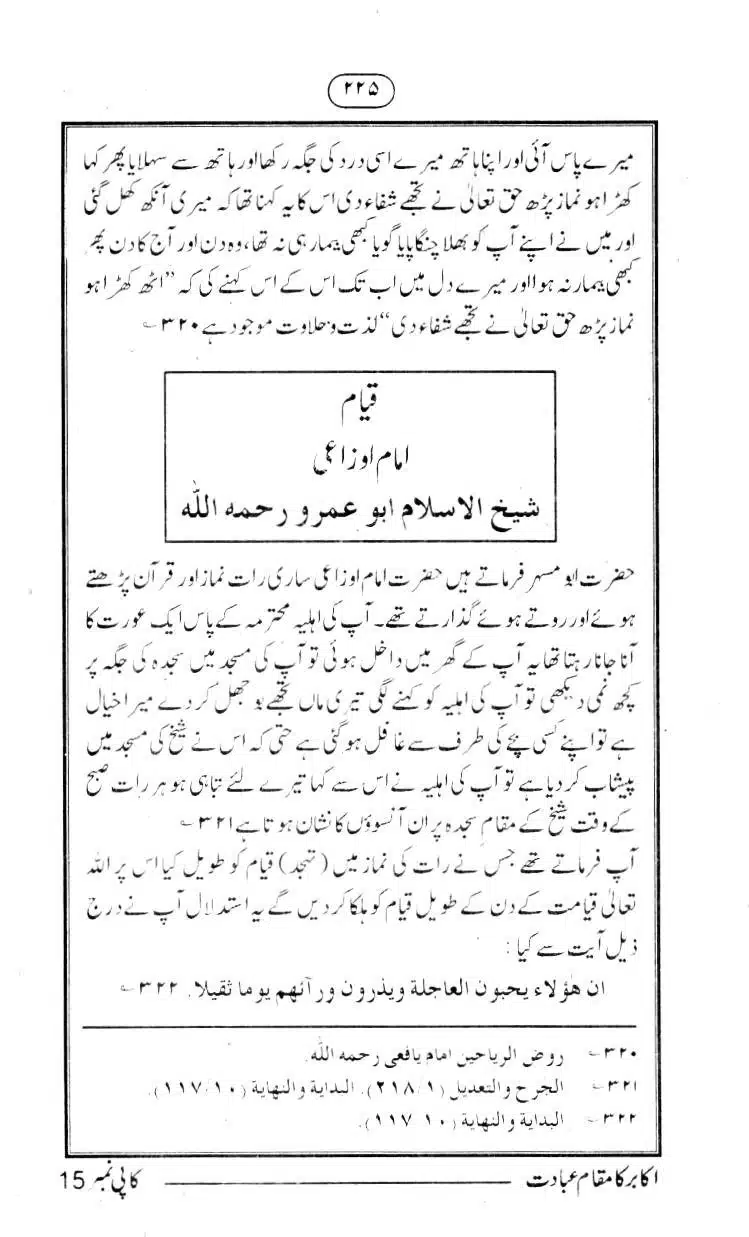 ۲۲۵
میرے پاس آئی اور اپنا ہاتھ میرے اسی درد کی جگہ رکھا اور ہاتھ سے سہلایا پھر کہا
کھڑا ہو نماز پڑھ حق تعالیٰ نے تجھے شفاء دی اس کا یہ کہنا تھا کہ میری آنکھ کھل گئی
اور میں نے اپنے آپ کو بھلا چنگا پایا گویا کبھی بیمار ہی نہ تھا، وہ دن اور آج کا دن پھر
کبھی بیمار نہ ہوا اور میرے دل میں اب تک اس کے اس کہنے کی کہ ”اٹھ کھڑا ہو
نماز پڑھ حق تعالیٰ نے تجھے شفاء دی“ لذت و حلاوت موجود ہے ۳۲۰؎
قیام
امام اوزاعی
شیخ الاسلام ابو عمرو رحمه الله
حضرت ابو مسہر فرماتے ہیں حضرت امام اوزاعی ساری رات نماز اور قرآن پڑھتے
ہوئے اور روتے ہوئے گذارتے تھے۔ آپ کی اہلیہ محترمہ کے پاس ایک عورت کا
آنا جانا رہتا تھا یہ آپ کے گھر میں داخل ہوئی تو آپ کی مسجد میں سجدہ کی جگہ پر
کچھ نمی دیکھی تو آپ کی اہلیہ کو کہنے لگی تیری ماں تجھے بوجھل کر دے میرا خیال
ہے تو اپنے کسی بچے کی طرف سے غافل ہو گئی ہے حتی کہ اس نے شیخ کی مسجد میں
پیشاب کر دیا ہے تو آپ کی اہلیہ نے اس سے کہا تیرے لئے تباہی ہو ہر رات صبح
کے وقت شیخ کے مقام سجدہ پر ان آنسوؤں کا نشان ہوتا ہے ۳۲۱؎
آپ فرماتے تھے جس نے رات کی نماز میں (تہجد) قیام کو طویل کیا اس پر اللہ
تعالیٰ قیامت کے دن کے طویل قیام کو ہلکا کر دیں گے یہ استدلال آپ نے درج
ذیل آیت سے کیا :
ان هؤلاء يحبون العاجلة ويذرون ورآئهم يوما ثقيلا. ۳۲۲؎
۳۲۰؎ روض الرياحين امام یافعی رحمه الله.
۳۲۱؎ الجرح والتعديل (۲۱۸/۱). البداية والنهاية (۱۱۷/۱۰).
۳۲۲؎ البداية والنهاية (۱۰ ۱۱۷).
اکابر کا مقام عبادت ــــــــــــــــ کاپی نمبر 15